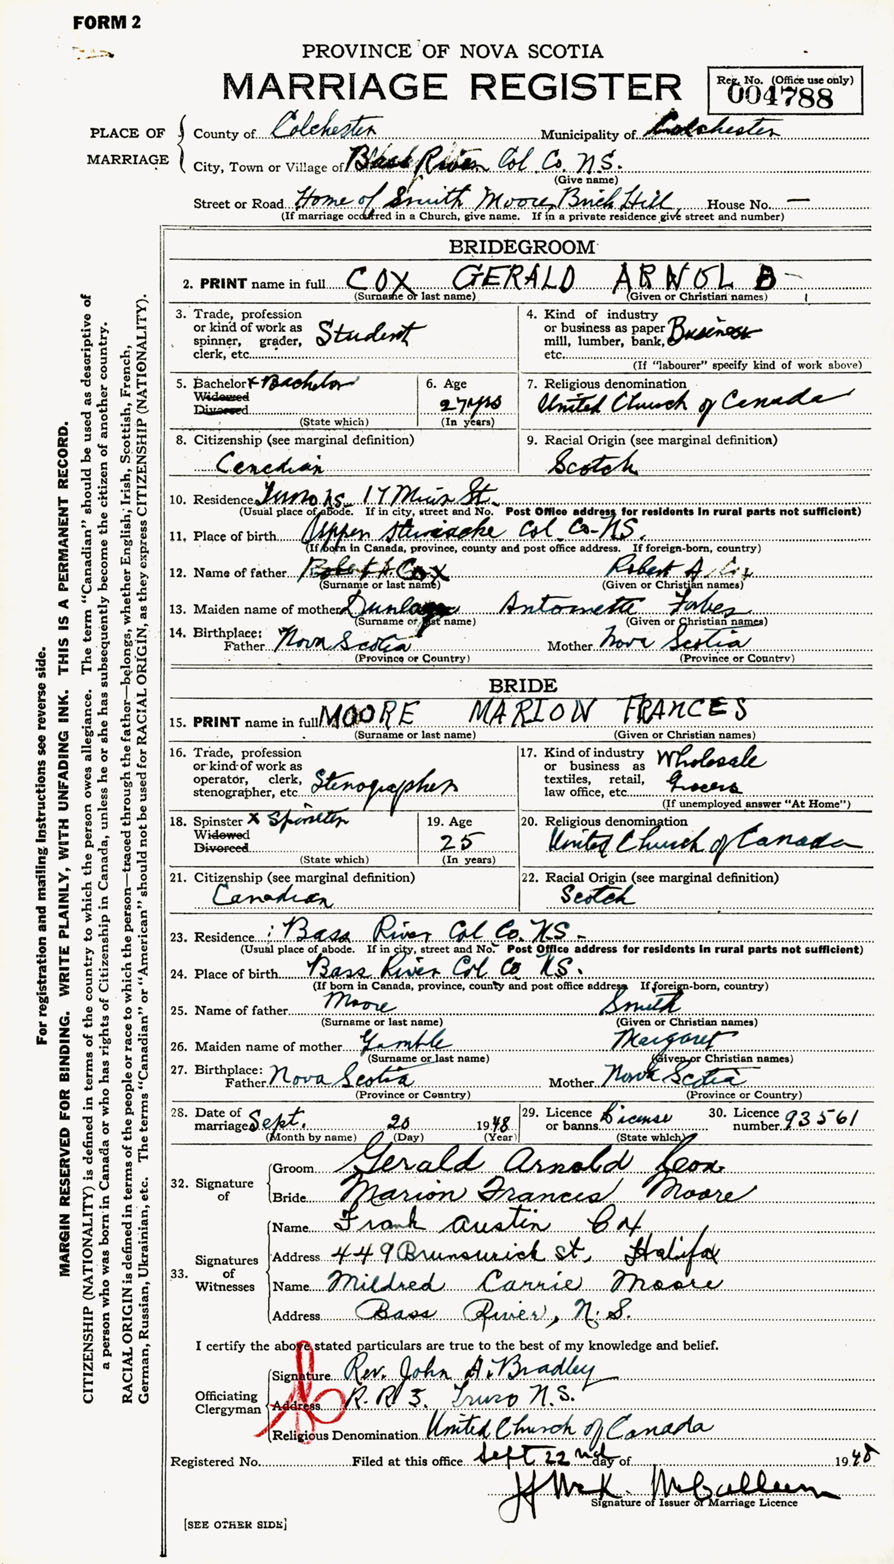 FORM 2
PROVINCE OF NOVA SCOTIA
MARRIAGE REGISTER
Reg. No. (Office use only)
004788
PLACE OF MARRIAGE
County of Colchester Municipality of Colchester
City, Town or Village of Bass River Col. Co. N.S.
(Give name)
Street or Road Home of Smith Moore, Brick Hill House No. —
(If marriage occurred in a Church, give name. If in a private residence give street and number)
BRIDEGROOM
2. PRINT name in full COX GERALD ARNOLD
(Surname or last name) (Given or Christian names)
3. Trade, profession or kind of work as spinner, grader, clerk, etc. Student
4. Kind of industry or business as paper mill, lumber, bank, etc. Business
(If "labourer" specify kind of work above)
5. Bachelor x Bachelor
Widowed
Divorced
(State which)
6. Age
27 yrs
(In years)
7. Religious denomination
United Church of Canada
8. Citizenship (see marginal definition)
Canadian
9. Racial Origin (see marginal definition)
Scotch
10. Residence Truro N.S. 17 Muir St.
(Usual place of abode. If in city, street and No. Post Office address for residents in rural parts not sufficient)
11. Place of birth Upper Stewiacke Col. Co. N.S.
(If born in Canada, province, county and post office address. If foreign-born, country)
12. Name of father Cox Robert A. Cox
(Surname or last name) (Given or Christian names)
13. Maiden name of mother Dunlap Antoinette Forbes
(Surname or last name) (Given or Christian names)
14. Birthplace:
Father Nova Scotia Mother Nova Scotia
(Province or Country) (Province or Country)
BRIDE
15. PRINT name in full MOORE MARION FRANCES
(Surname or last name) (Given or Christian names)
16. Trade, profession or kind of work as operator, clerk, stenographer, etc. Stenographer
17. Kind of industry or business as textiles, retail, law office, etc. Wholesale Grocers
(If unemployed answer "At Home")
18. Spinster x Spinster
Widowed
Divorced
(State which)
19. Age
25
(In years)
20. Religious denomination
United Church of Canada
21. Citizenship (see marginal definition)
Canadian
22. Racial Origin (see marginal definition)
Scotch
23. Residence Bass River Col Co. N.S.
(Usual place of abode. If in city, street and No. Post Office address for residents in rural parts not sufficient)
24. Place of birth Bass River Col Co N.S.
(If born in Canada, province, county and post office address. If foreign-born, country)
25. Name of father Moore Smith
(Surname or last name) (Given or Christian names)
26. Maiden name of mother Gamble Margaret
(Surname or last name) (Given or Christian names)
27. Birthplace:
Father Nova Scotia Mother Nova Scotia
(Province or Country) (Province or Country)
28. Date of marriage Sept. 20 1948
(Month by name) (Day) (Year)
29. Licence or banns License
(State which)
30. Licence number 93561
32. Signature of
Groom Gerald Arnold Cox
Bride Marion Frances Moore
33. Signatures of Witnesses
Name Frank Austin Cox
Address 449 Brunswick St, Halifax
Name Mildred Carrie Moore
Address Bass River, N.S.
I certify the above stated particulars are true to the best of my knowledge and belief.
Officiating Clergyman
Signature Rev. John A. Bradley
Address R.R 3. Truro N.S.
Religious Denomination United Church of Canada
Registered No. Filed at this office Sept 22nd day of 1948
Signature of Issuer of Marriage Licence
[SEE OTHER SIDE]
For registration and mailing instructions see reverse side.
MARGIN RESERVED FOR BINDING. WRITE PLAINLY, WITH UNFADING INK. THIS IS A PERMANENT RECORD.
CITIZENSHIP (NATIONALITY) is defined in terms of the country to which the person owes allegiance. The term "Canadian" should be used as descriptive of
a person who was born in Canada or who has rights of Citizenship in Canada, unless he or she has subsequently become the citizen of another country.
RACIAL ORIGIN is defined in terms of the people or race to which the person—traced through the father—belongs, whether English, Irish, Scottish, French,
German, Russian, Ukrainian, etc. The terms "Canadian" or "American" should not be used for RACIAL ORIGIN, as they express CITIZENSHIP (NATIONALITY).